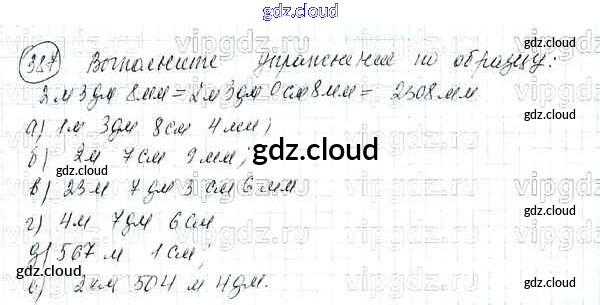 gdz.cloud
387 Выполните упражнение по образцу:
2 м 3 дм 8 мм = 2 м 3 дм 0 см 8 мм = 2308 мм
а) 1 м 3 дм 8 см 4 мм;
б) 2 м 7 см 9 мм;
в) 23 м 7 дм 3 см 6 мм
г) 4 м 7 дм 6 см
д) 567 м 1 см;
е) 2 км 504 м 4 дм.
gdz.cloud